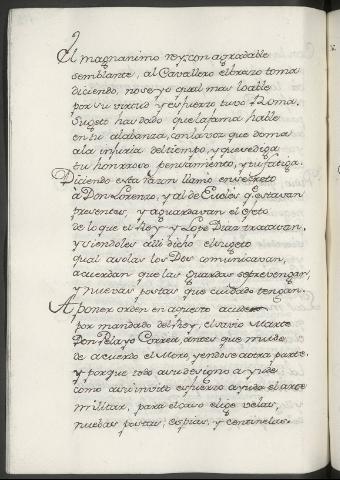 El magnanimo rey, con agradable
semblante, al Cavallero el brazo toma
diciendo, no se yo qual mas loable
por su virtud y esfuerzo tuvo Roma.
Sugeto has dado que la fama hable
en tu alabanza, con la voz que doma
a la injuria del tiempo, y que se diga
tu honrroso pensamiento, y tu fatiga.
Diciendo esta razon llamò en secreto
à Don Lorenzo, y al de Eucles q. estavan
presentes, y aguardavan el efeto
de lo que el Rey y Lope Diaz tratavan.
y siendoles alli dicho el sugeto
qual a solas los Dos comunicavan,
acuerdan que las guardas se prevengan,
y nuevas postas que cuidado tengan.
A poner orden en aquesto acude
por mandado del Rey, el savio Marte
Don Pelayo Correa, antes que mude
de acuerdo el Moro, yendose a otra parte.
y porque todo a su designo ayude
como a su invito esfuerzo ayuda el arte
militar, para el caso elige velas,
nuebas postas, espias, y centinelas.